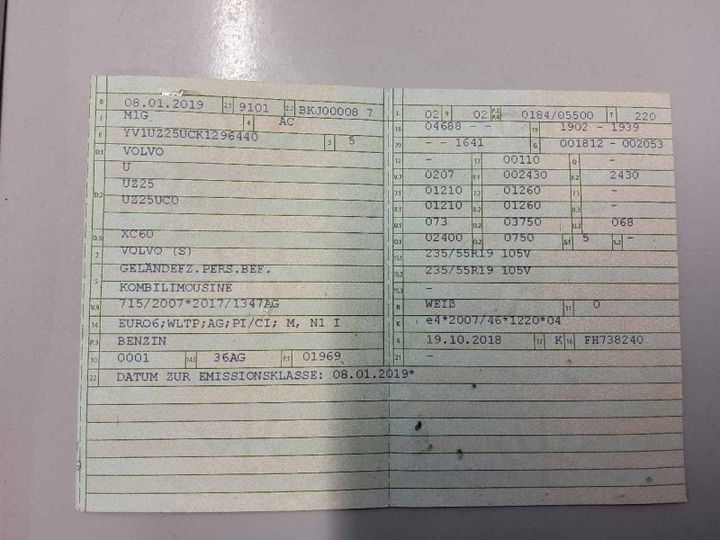 B 08.01.2019 2.1 9101 2.2 BKJ00008 7
J M1G 4 AC
E YV1UZ25UCK1296440 3 5
D.1 VOLVO
U
D.2 UZ25
UZ25UC0
D.3 XC60
2 VOLVO (S)
5 GELÄNDEFZ.PERS.BEF.
KOMBILIMOUSINE
V.9 715/2007*2017/1347AG
14 EURO6;WLTP;AG;PI/CI; M, N1 I
P.3 BENZIN
10 0001 14.1 36AG P.1 01969
22 DATUM ZUR EMISSIONSKLASSE: 08.01.2019*
L 02 9 02 P.2 P.4 0184/05500 T 220
18 04688 - - 19 1902 - 1939
20 - - 1641 G 001812 - 002053
12 - 13 00110 Q -
V.7 0207 F.1 002430 F.2 2430
7.1 01210 7.2 01260 -
8.1 01210 8.2 01260 -
U.1 073 U.2 03750 U.3 068
O.1 02400 O.2 0750 S.1 5 S.2 -
15.1 235/55R19 105V
15.2 235/55R19 105V
15.3 -
R WEIß 11 0
K e4*2007/46*1220*04
6 19.10.2018 17 K 16 FH738240
21 -